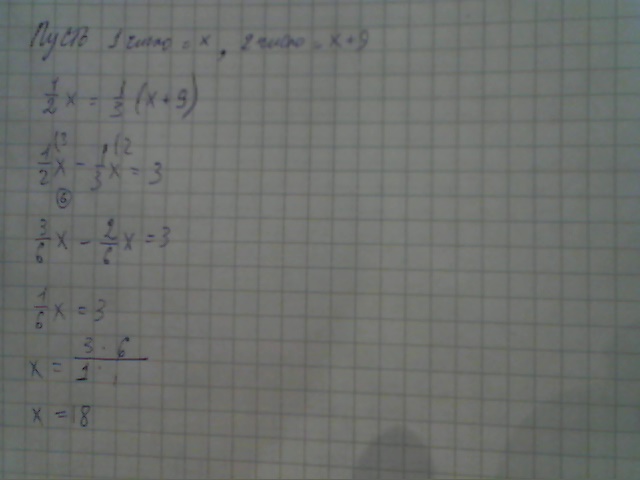 Пусть 1 число = x, 2 число = x+9
1/2 x = 1/3 (x+9)
1/2 (3 x - 1/3 (2 x = 3
6
3/6 x - 2/6 x = 3
1/6 x = 3
x = 3 · 6 / 1
x = 18